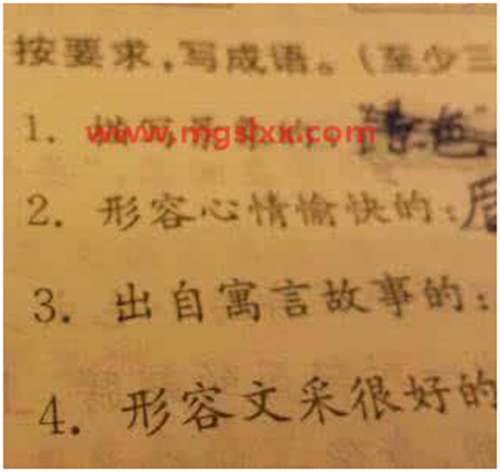 按要求,写成语。(至少三
1. 描写景色的:
www.mgslxx.com
2. 形容心情愉快的:
3. 出自寓言故事的:
4. 形容文采很好的